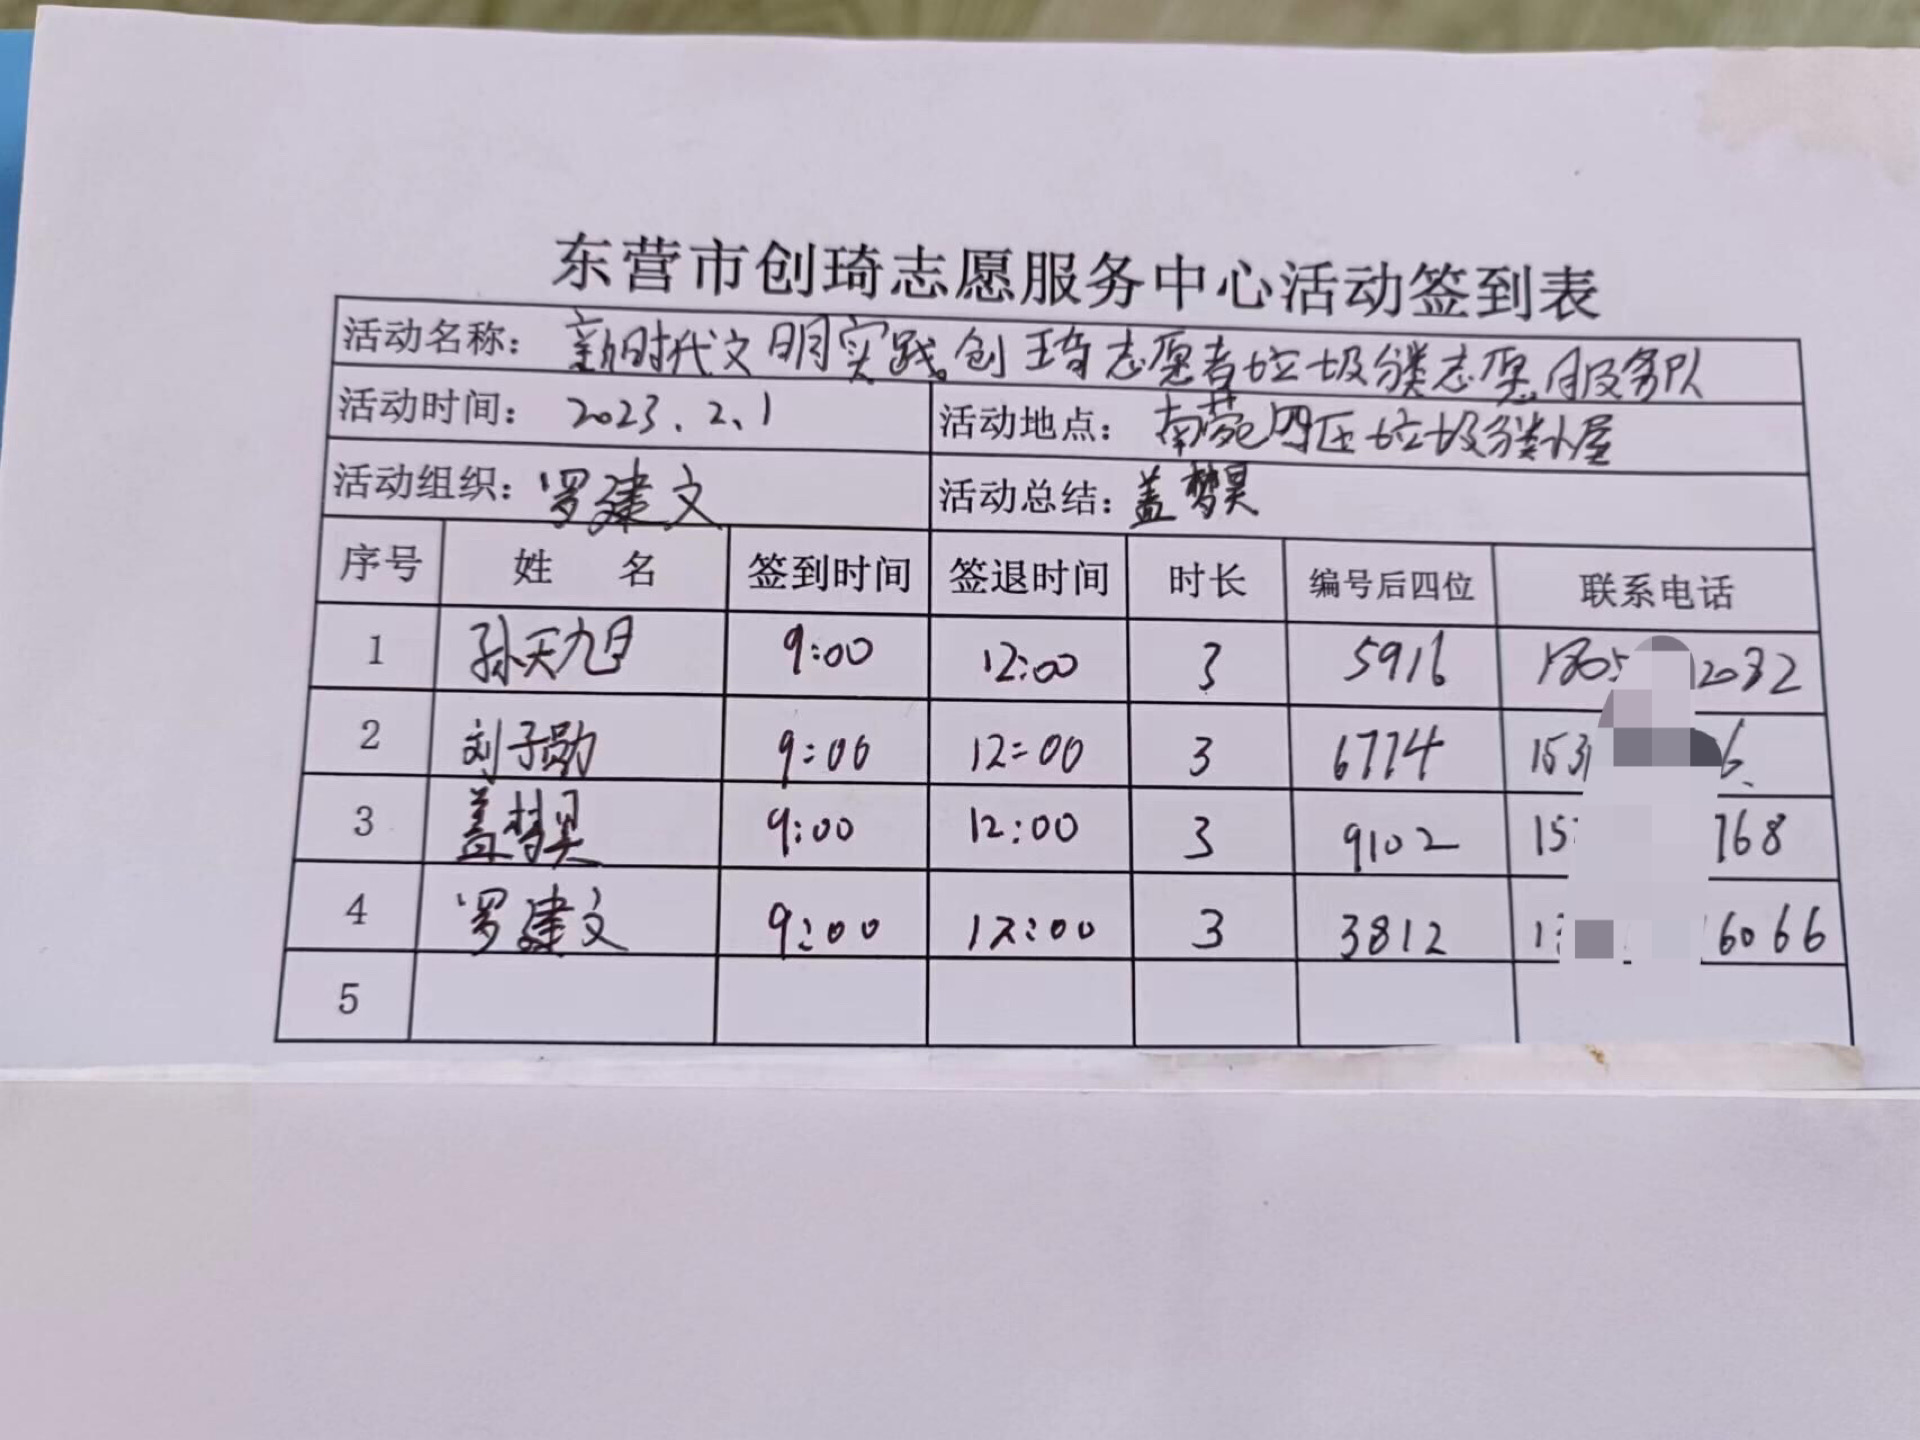 东营市创琦志愿服务中心活动签到表
活动名称：新时代文明实践创琦志愿者垃圾分类志愿服务队
活动时间：2023.2.1 活动地点：南苑四区垃圾分类小屋
活动组织：罗建文 活动总结：盖梦昊
序号 姓名 签到时间 签退时间 时长 编号后四位 联系电话
1 孙天旭 9:00 12:00 3 5916 2032
2 刘子勋 9:00 12:00 3 6774 153 6
3 盖梦昊 9:00 12:00 3 9102 15 768
4 罗建文 9:00 12:00 3 3812 1 6066
5